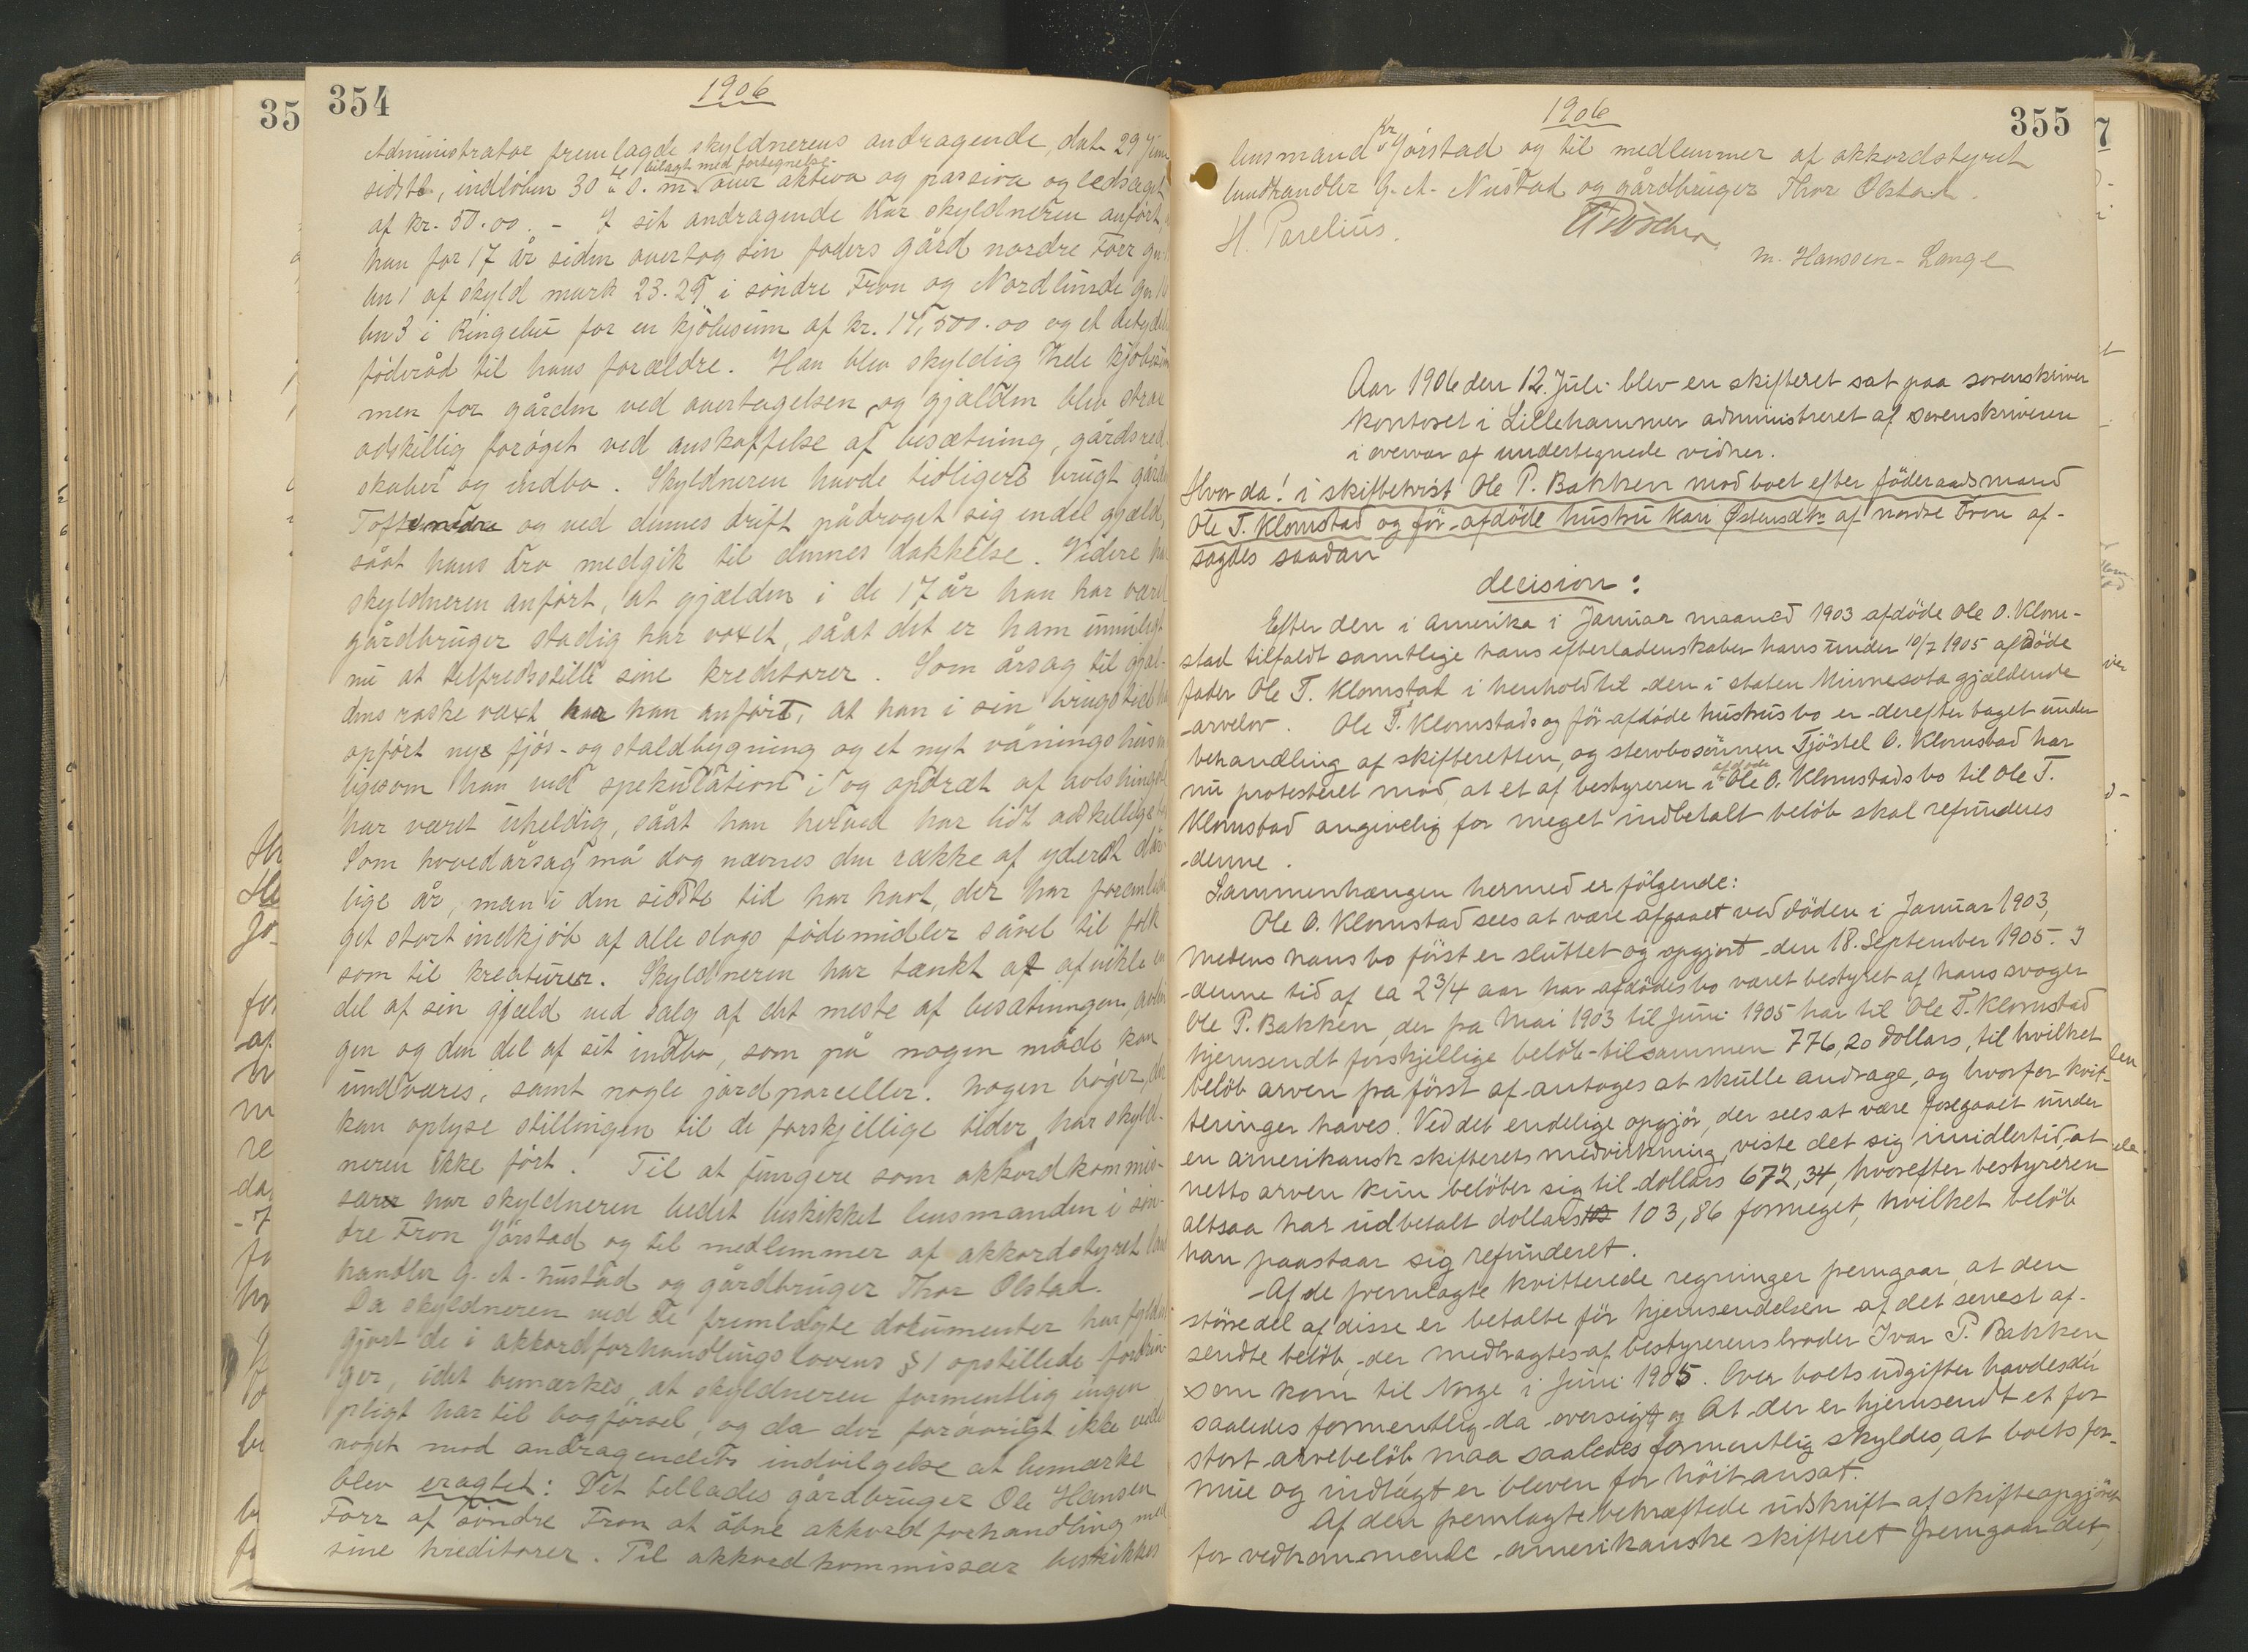 35
354
1906
Administrator fremlagde skyldnerens andragende, dat. 29 Juni
bilagt med fortegnelse
sidstl., indløben 30 s. m. over aktiva og passiva og ledsaget
af kr. 50.00. - I sit andragende har skyldneren anført,
han for 17 år siden overtog sin faders gård nordre Forr gn.
bn 1 af skyld mark 23.29 i søndre Fron og Nordlunde gn
bn 3 i Ringebu for en kjøbesum af kr. 15,500.00 og et betydel
føderåd til hans forældre. Han blev skyldig hele kjøbesum
men for gården ved overtagelsen og gjælden blev strax
adskillig forøget ved anskaffelse af besætning, gårdsred
skaber og indbo. Skyldneren havde tidligere brugt gården
Tofte nedre og ved dennes drift pådraget sig endel gjæld,
sååt hans arv medgik til dennes dækkelse. Videre har
skyldneren anført, at gjælden i de 17 år han har været
gårdbruger stadig har voxet, sååt det er ham umuligt
nu at tilfredsstille sine kreditorer. Som årsag til gjæl-
dens raske vext har han anført, at han i sin brugstid har
opført nye fjøs- og staldbygning og et nyt våningshus
ligesom han ved spekulation i og opdræt af avlshingste
har været uheldig, sååt han herved har lidt adskillige
Som hovedårsag må dog nævnes den række af yderst dår-
lige år, man i den sidste tid har havt, der har foranledi
get stort indkjøb af alle slags fødemidler såvel til folk
som til kreaturer. Skyldneren har tænkt at afvikle en
del af sin gjæld ved salg af det meste af besætningen, avlin
gen og den del af sit indbo, som på nogen måde kan
undværes, samt nogle jordparceller. Nogen bøger, der
kan oplyse stillingen til de forskjellige tider, har skyld-
neren ikke ført. Til at fungere som akkordkommis-
sær har skyldneren bedet beskikket lensmanden i søn-
dre Fron Jørstad og til medlemmer af akkordstyret land
handler G. A. Nustad og gårdbruger Thor Olstad.
Da skyldneren ved de fremlagte dokumenter har fyldest
gjort de i akkordforhandlingslovens § 1 opstillede fordrin-
ger, idet bemærkes, at skyldneren formentlig ingen
pligt har til bogførsel, og da der forøvrigt ikke vides
noget mod andragendets indvilgelse at bemærke
blev eragtet: Det tillades gårdbruger Ole Hansen
Forr af søndre Fron at åbne akkordforhandling med
sine kreditorer. Til akkordkommissær beskikkes
1906
355
7
lensmand Kr. Jørstad og til medlemmer af akkordstyret
landhandler G. A. Nustad og gårdbruger Thor Olstad.
H. Parelius.
M. Hanssen-Lange
Aar 1906 den 12. Juli blev en skifteret sat paa sorenskriver
kontoret i Lillehammer administreret af sorenskriveren
i overvær af undertegnede vidner.
Hvor da! i skiftetvist Ole P. Bakken mod boet efter föderaadsmand
Ole T. Klomstad og för afdöde hustru Kari Østensdtr. af nordre Fron af-
sagdes saadan
decision:
Efter den i Amerika i Januar maaned 1903 afdöde Ole O. Klom-
stad tilfaldt samtlige hans efterladenskaber hans under 10/7 1905 afdöde
fader Ole T. Klomstad i henhold til den i staten Minnesota gjældende
arvelov. Ole T. Klomstads og för afdöde hustrus bo er derefter taget under
behandling af skifteretten, og stervbosönnen Tjöstel O. Klomstad har
nu protesteret mod, at et af bestyreren i afdöde Ole O. Klomstads bo til Ole T.
Klomstad angivelig for meget indbetalt belöb skal refunderes
denne.
Sammenhængen hermed er fölgende:
Ole O. Klomstad sees at være afgaaet ved döden i Januar 1903,
medens hans bo först er sluttet og opgjort den 18. September 1905. I
denne tid af ca 2 3/4 aar har afdödes bo været bestyret af hans svoger
Ole P. Bakken, der fra Mai 1903 til Juni 1905 har til Ole T. Klomstad
hjemsendt forskjellige belöb - tilsammen 776,20 dollars, til hvilket
belöb arven fra först af antoges at skulle andrage, og hvorfor kvit-
teringer haves. Ved det endelige opgjör, der sees at være foregaaet under
en amerikansk skifterets medvirkning, viste det sig imidlertid, at
netto arven kun belöber sig til dollars 672,34, hvorefter bestyreren
altsaa har udbetalt dollars 103,86 formeget, hvilket belöb
han paastaar sig refunderet.
Af de fremlagte kvitterede regninger fremgaar, at den
större del af disse er betalte för hjemsendelsen af det senest af-
sendte belöb, der medbragtes af bestyrerens broder Ivar P. Bakken,
som kom til Norge i Juni 1905. Over boets udgifter havdes der
saaledes formentlig da oversigt, og At der er hjemsendt et for
stort arvebelöb maa saaledes formentlig skyldes, at boets for-
mue og indtægt er bleven for höit ansat.
Af den fremlagte bekræftede udskrift af skifteopgjöret
for vedkommende amerikanske skifteret fremgaar det,